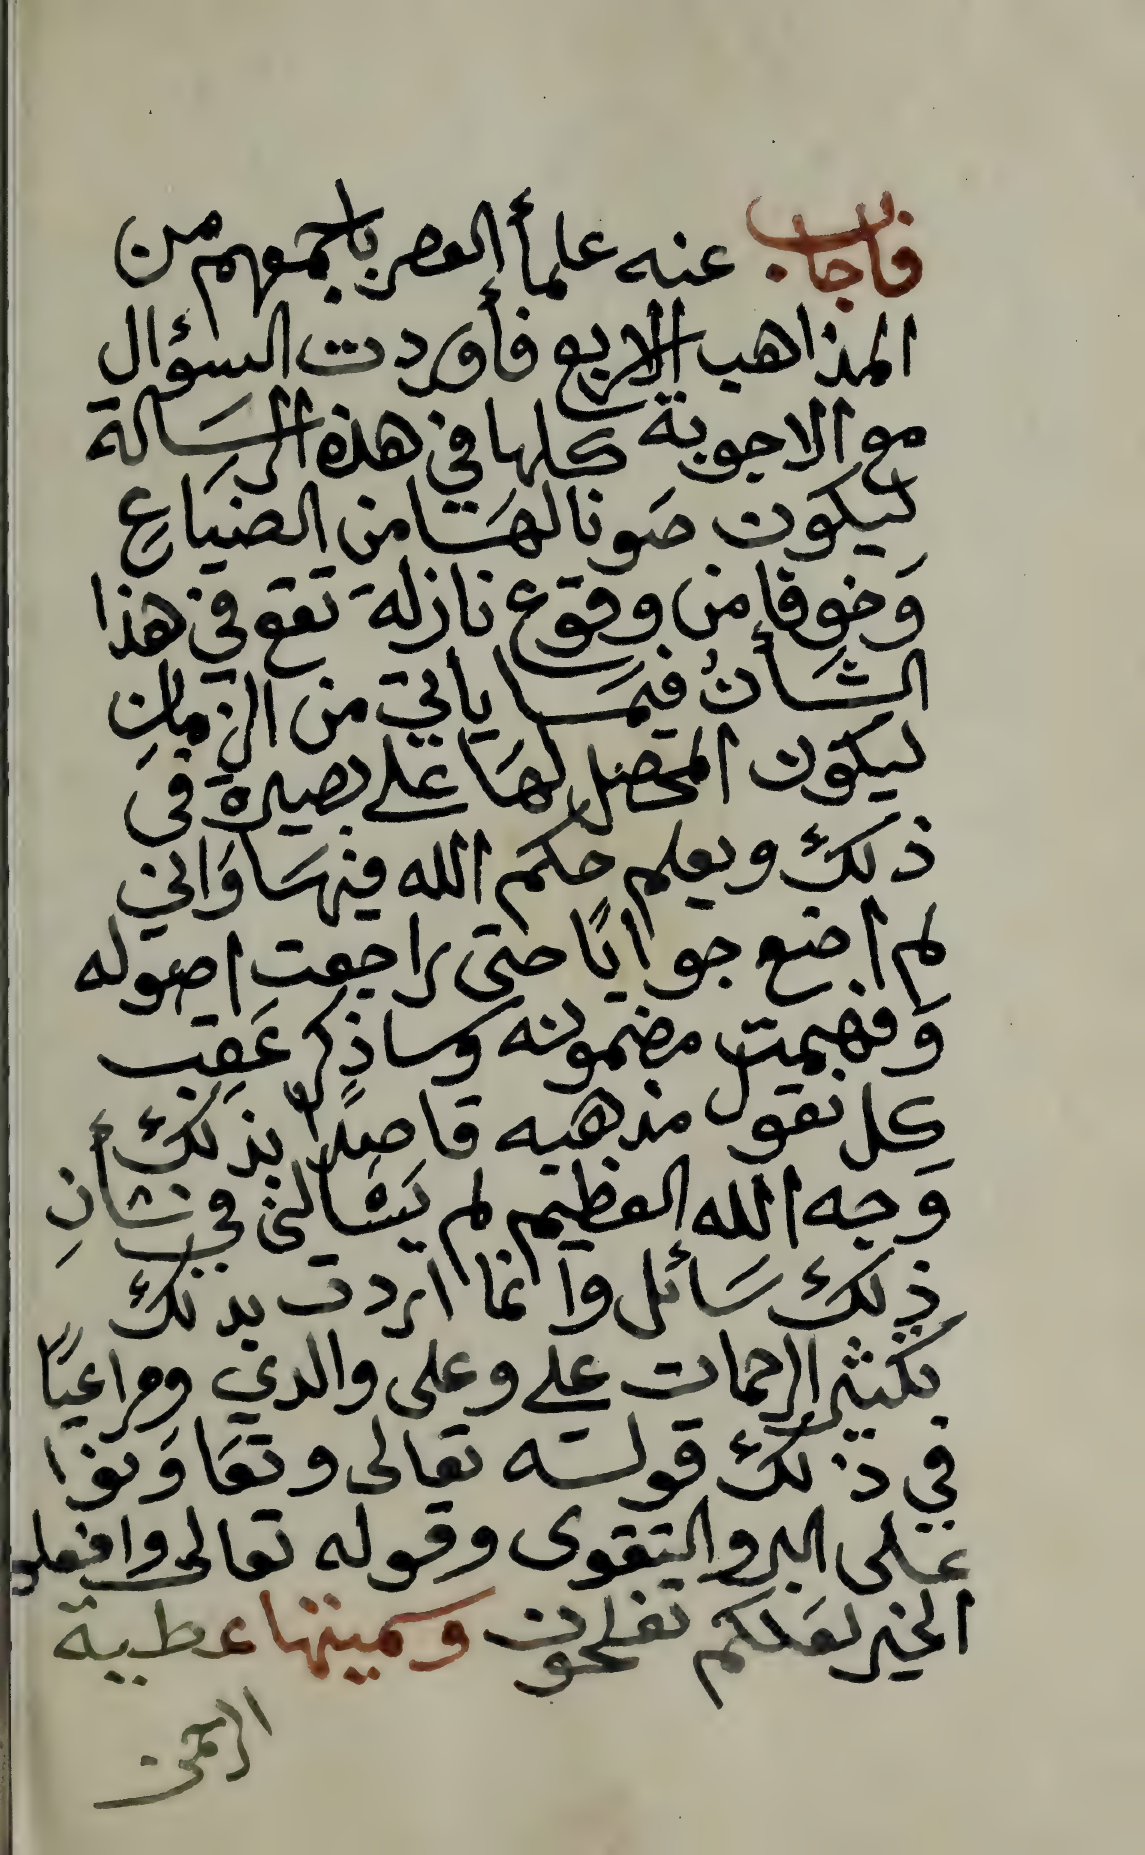 فأجاب عنه علمأ العصر باجمعهم من
المذاهب الاربع فأوردت السؤال
مع الاجوبة كلها في هذه الرسَالة
ليكون صَونا لهَا من الضيَاعِ
وَخوفا من وقوع نازلة تقع في هذا
الشَأن فيمَا ياتي من الزمانِ
ليكون المحصل لهَا على بصيرة في
ذلك ويعلم حكم الله فيهَا وَاني
لم اضع جوابًا حتى راجعت اصوله
وَفهمت مضمونه وساذكر عَقِب
كل نقول مذهبه قاصدًا بذلك
وَجه الله العظيم لم يَسَالني في شَأنِ
ذلك سَائل وانما اردت بذلك
تكثير الرحمات علي وعلى والدي ومراعيًا
في ذلك قولـه تعالى وتعَاوَنوا
عَلى البر والتقوى وقوله تعالى وافعلو
الخير لعَلكم تفلحون وسميتها عطية
الرحمن